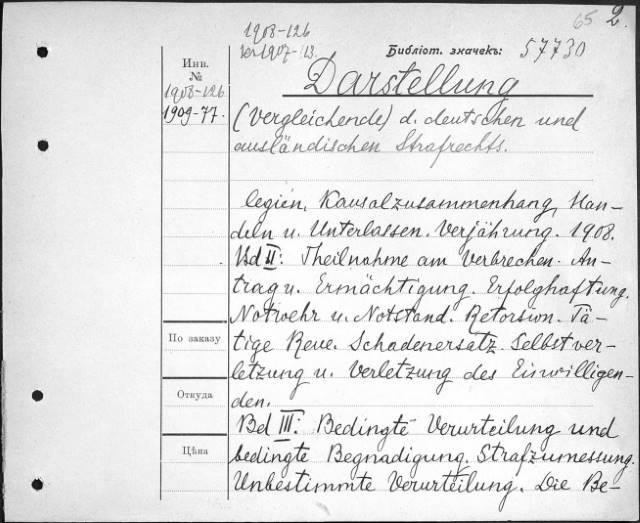 65 2.
1908-126
1907-13.
Библіот. значекъ: 57730
Инв.
№
1908-126
1909-77.
Darstellung
(vergleichende) d. deutschen und
ausländischen Strafrechts.
legien. Kausalzusammenhang, Han-
deln u. Unterlassen. Verjährung. 1908.
Bd II: Theilnahme am Verbrechen. An-
trag u. Ermächtigung. Erfolghaftung.
Notwehr u. Notstand. Retorsion. Tä-
tige Reue. Schadenersatz. Selbstver-
letzung u. Verletzung des Einwilligen-
den.
Bd III: Bedingte Verurteilung und
bedingte Begnadigung. Strafzumessung.
Unbestimmte Verurteilung. Die Be-
По заказу
Откуда
Цѣна